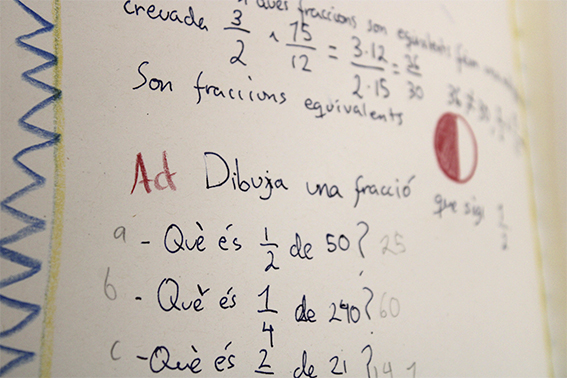 dues fraccions son equivalents fem una
creuada 3/2 i 15/12 = 3·12/2·15 = 36/30
Son fraccions equivalents 36 ≠ 30
Ad Dibuja una fracció que sigi 1/2
a - Què és 1/2 de 50? 25
b - Què és 1/4 de 240? 60
c - Què és 2 de 21? 14